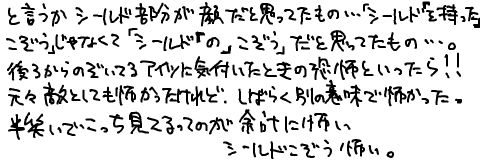 と言うかシールド部分が敵だと思ってたもの…「シールド『を持った』
こぞう」じゃなくて「シールド『の』こぞう」だと思ってたもの…。
後ろからのぞいてるアイツに気付いたときの恐怖といったら!!
元々敵としても怖かったけれど、しばらく別の意味で怖かった。
半笑いでこっち見てるってのが余計に怖い
シールドこぞう怖い。